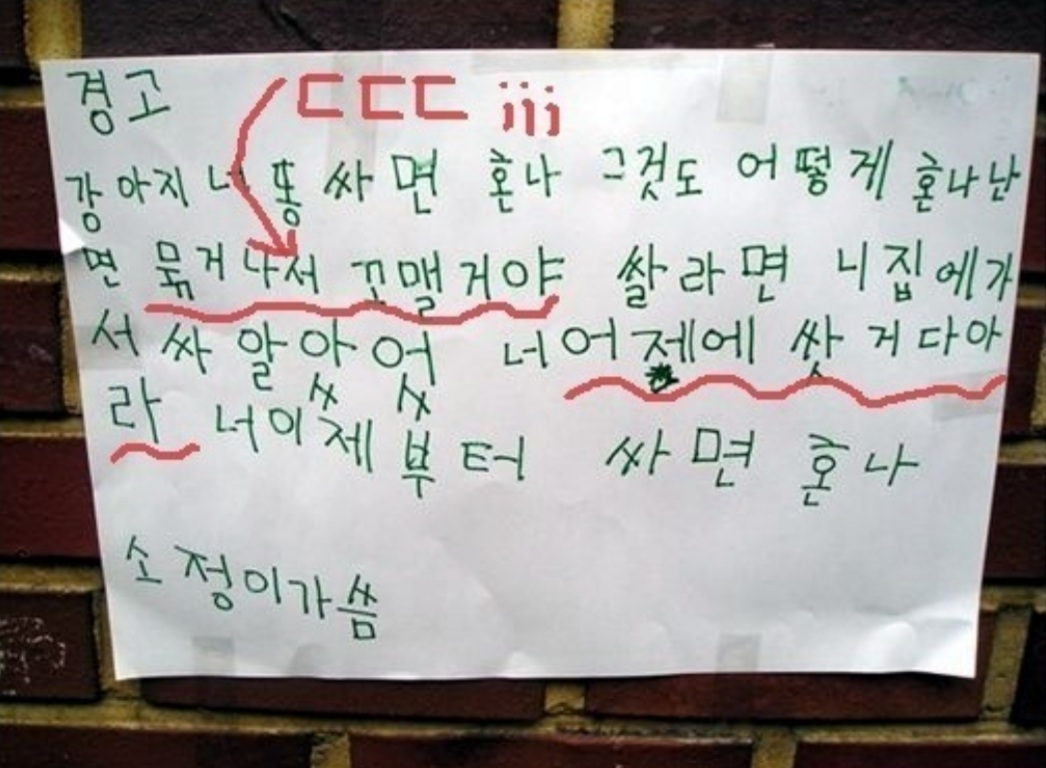 경고
ㄷㄷㄷ ;;;
강아지 너 똥 싸면 혼나 그것도 어떻게 혼나난
면 묶거나서 꼬맬거야 쌀라면 니집에가
서 싸 알았어 너 어제에 쌋거 다아
라 너 이제부터 싸면 혼나
소정이가 씀